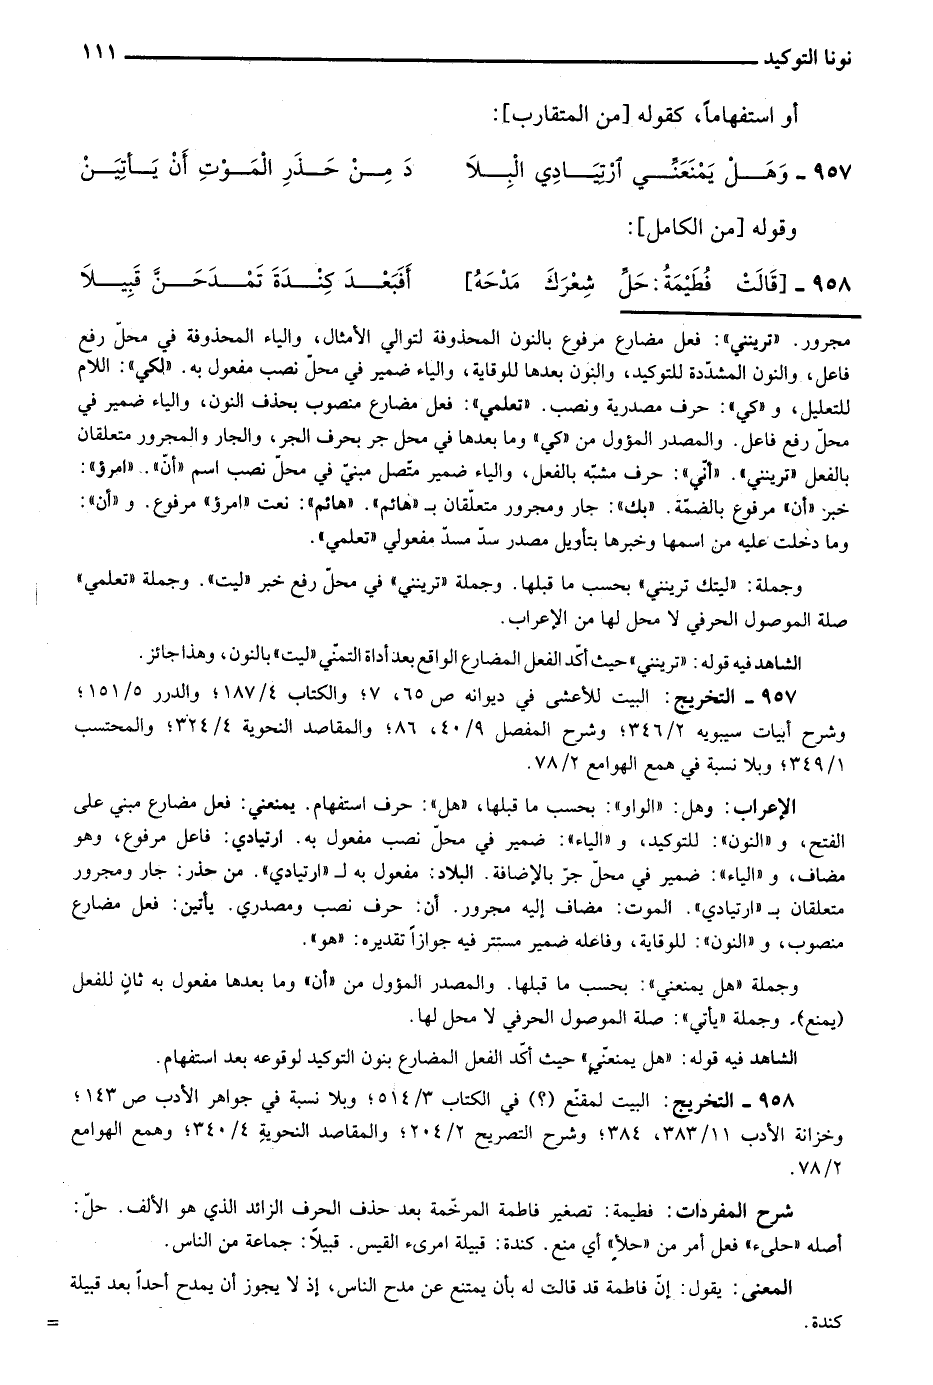 نونا التوكيد ١١١
أو استفهاماً، كقوله [من المتقارب]:
٩٥٧ ـ وَهَـلْ يَمْنَعَنِّـي ٱرْتِيَـادِي الْبِـلَا دَ مِـنْ حَـذَرِ الْمَـوْتِ أَنْ يَـأْتِيَـنْ
وقوله [من الكامل]:
٩٥٨ ـ [قَالَتْ فُطَيْمَةُ: حَلِّ شِعْرَكَ مَدْحَهُ] أَفَبَعْـدَ كِنْـدَةَ تَمْـدَحَـنَّ قَبِيـلَا
مجرور. «ترينني»: فعل مضارع مرفوع بالنون المحذوفة لتوالي الأمثال، والياء المحذوفة في محلّ رفع
فاعل، والنون المشدّدة للتوكيد، والنون بعدها للوقاية، والياء ضمير في محلّ نصب مفعول به. «لكي»: اللام
للتعليل، و «كي»: حرف مصدرية ونصب. «تعلمي»: فعل مضارع منصوب بحذف النون، والياء ضمير في
محلّ رفع فاعل. والمصدر المؤول من «كي» وما بعدها في محل جر بحرف الجر، والجار والمجرور متعلقان
بالفعل «ترينني». «أنّي»: حرف مشبّه بالفعل، والياء ضمير متّصل مبنيّ في محلّ نصب اسم «أنّ». «امرؤ»:
خبر «أن» مرفوع بالضمّة. «بك»: جار ومجرور متعلّقان بـ «هائم». «هائم»: نعت «امرؤ» مرفوع. و «أن»:
وما دخلت عليه من اسمها وخبرها بتأويل مصدر سدّ مسدّ مفعولي «تعلمي».
وجملة: «ليتك ترينني» بحسب ما قبلها. وجملة «ترينني» في محلّ رفع خبر «ليت». وجملة «تعلمي»
صلة الموصول الحرفي لا محل لها من الإعراب.
الشاهد فيه قوله: «ترينني» حيث أكّد الفعل المضارع الواقع بعد أداة التمنّي «ليت» بالنون، وهذا جائز.
٩٥٧ ـ التخريج: البيت للأعشى في ديوانه ص ٦٥، ٧؛ والكتاب ١٨٧/٤؛ والدرر ١٥١/٥؛
وشرح أبيات سيبويه ٣٤٦/٢؛ وشرح المفصل ٤٠/٩، ٨٦؛ والمقاصد النحوية ٣٢٤/٤؛ والمحتسب
٣٤٩/١؛ وبلا نسبة في همع الهوامع ٧٨/٢.
الإعراب: وهل: «الواو»: بحسب ما قبلها، «هل»: حرف استفهام. يمنعني: فعل مضارع مبني على
الفتح، و «النون»: للتوكيد، و «الياء»: ضمير في محلّ نصب مفعول به. ارتيادي: فاعل مرفوع، وهو
مضاف، و «الياء»: ضمير في محلّ جرّ بالإضافة. البلاد: مفعول به لـ «ارتيادي». من حذر: جار ومجرور
متعلقان بـ «ارتيادي». الموت: مضاف إليه مجرور. أن: حرف نصب ومصدري. يأتين: فعل مضارع
منصوب، و «النون»: للوقاية، وفاعله ضمير مستتر فيه جوازاً تقديره: «هو».
وجملة «هل يمنعني»: بحسب ما قبلها. والمصدر المؤول من «أن» وما بعدها مفعول به ثانٍ للفعل
(يمنع). وجملة «يأتي»: صلة الموصول الحرفي لا محل لها.
الشاهد فيه قوله: «هل يمنعنّي» حيث أكّد الفعل المضارع بنون التوكيد لوقوعه بعد استفهام.
٩٥٨ ـ التخريج: البيت لمقنّع (؟) في الكتاب ٥١٤/٣؛ وبلا نسبة في جواهر الأدب ص ١٤٣؛
وخزانة الأدب ٣٨٣/١١، ٣٨٤؛ وشرح التصريح ٢٠٤/٢؛ والمقاصد النحوية ٣٤٠/٤؛ وهمع الهوامع
٧٨/٢.
شرح المفردات: فطيمة: تصغير فاطمة المرخّمة بعد حذف الحرف الزائد الذي هو الألف. حلّ:
أصله «حلىء» فعل أمر من «حلأ» أي منع. كندة: قبيلة امرىء القيس. قبيلاً: جماعة من الناس.
المعنى: يقول: إنّ فاطمة قد قالت له بأن يمتنع عن مدح الناس، إذ لا يجوز أن يمدح أحداً بعد قبيلة
كندة. =